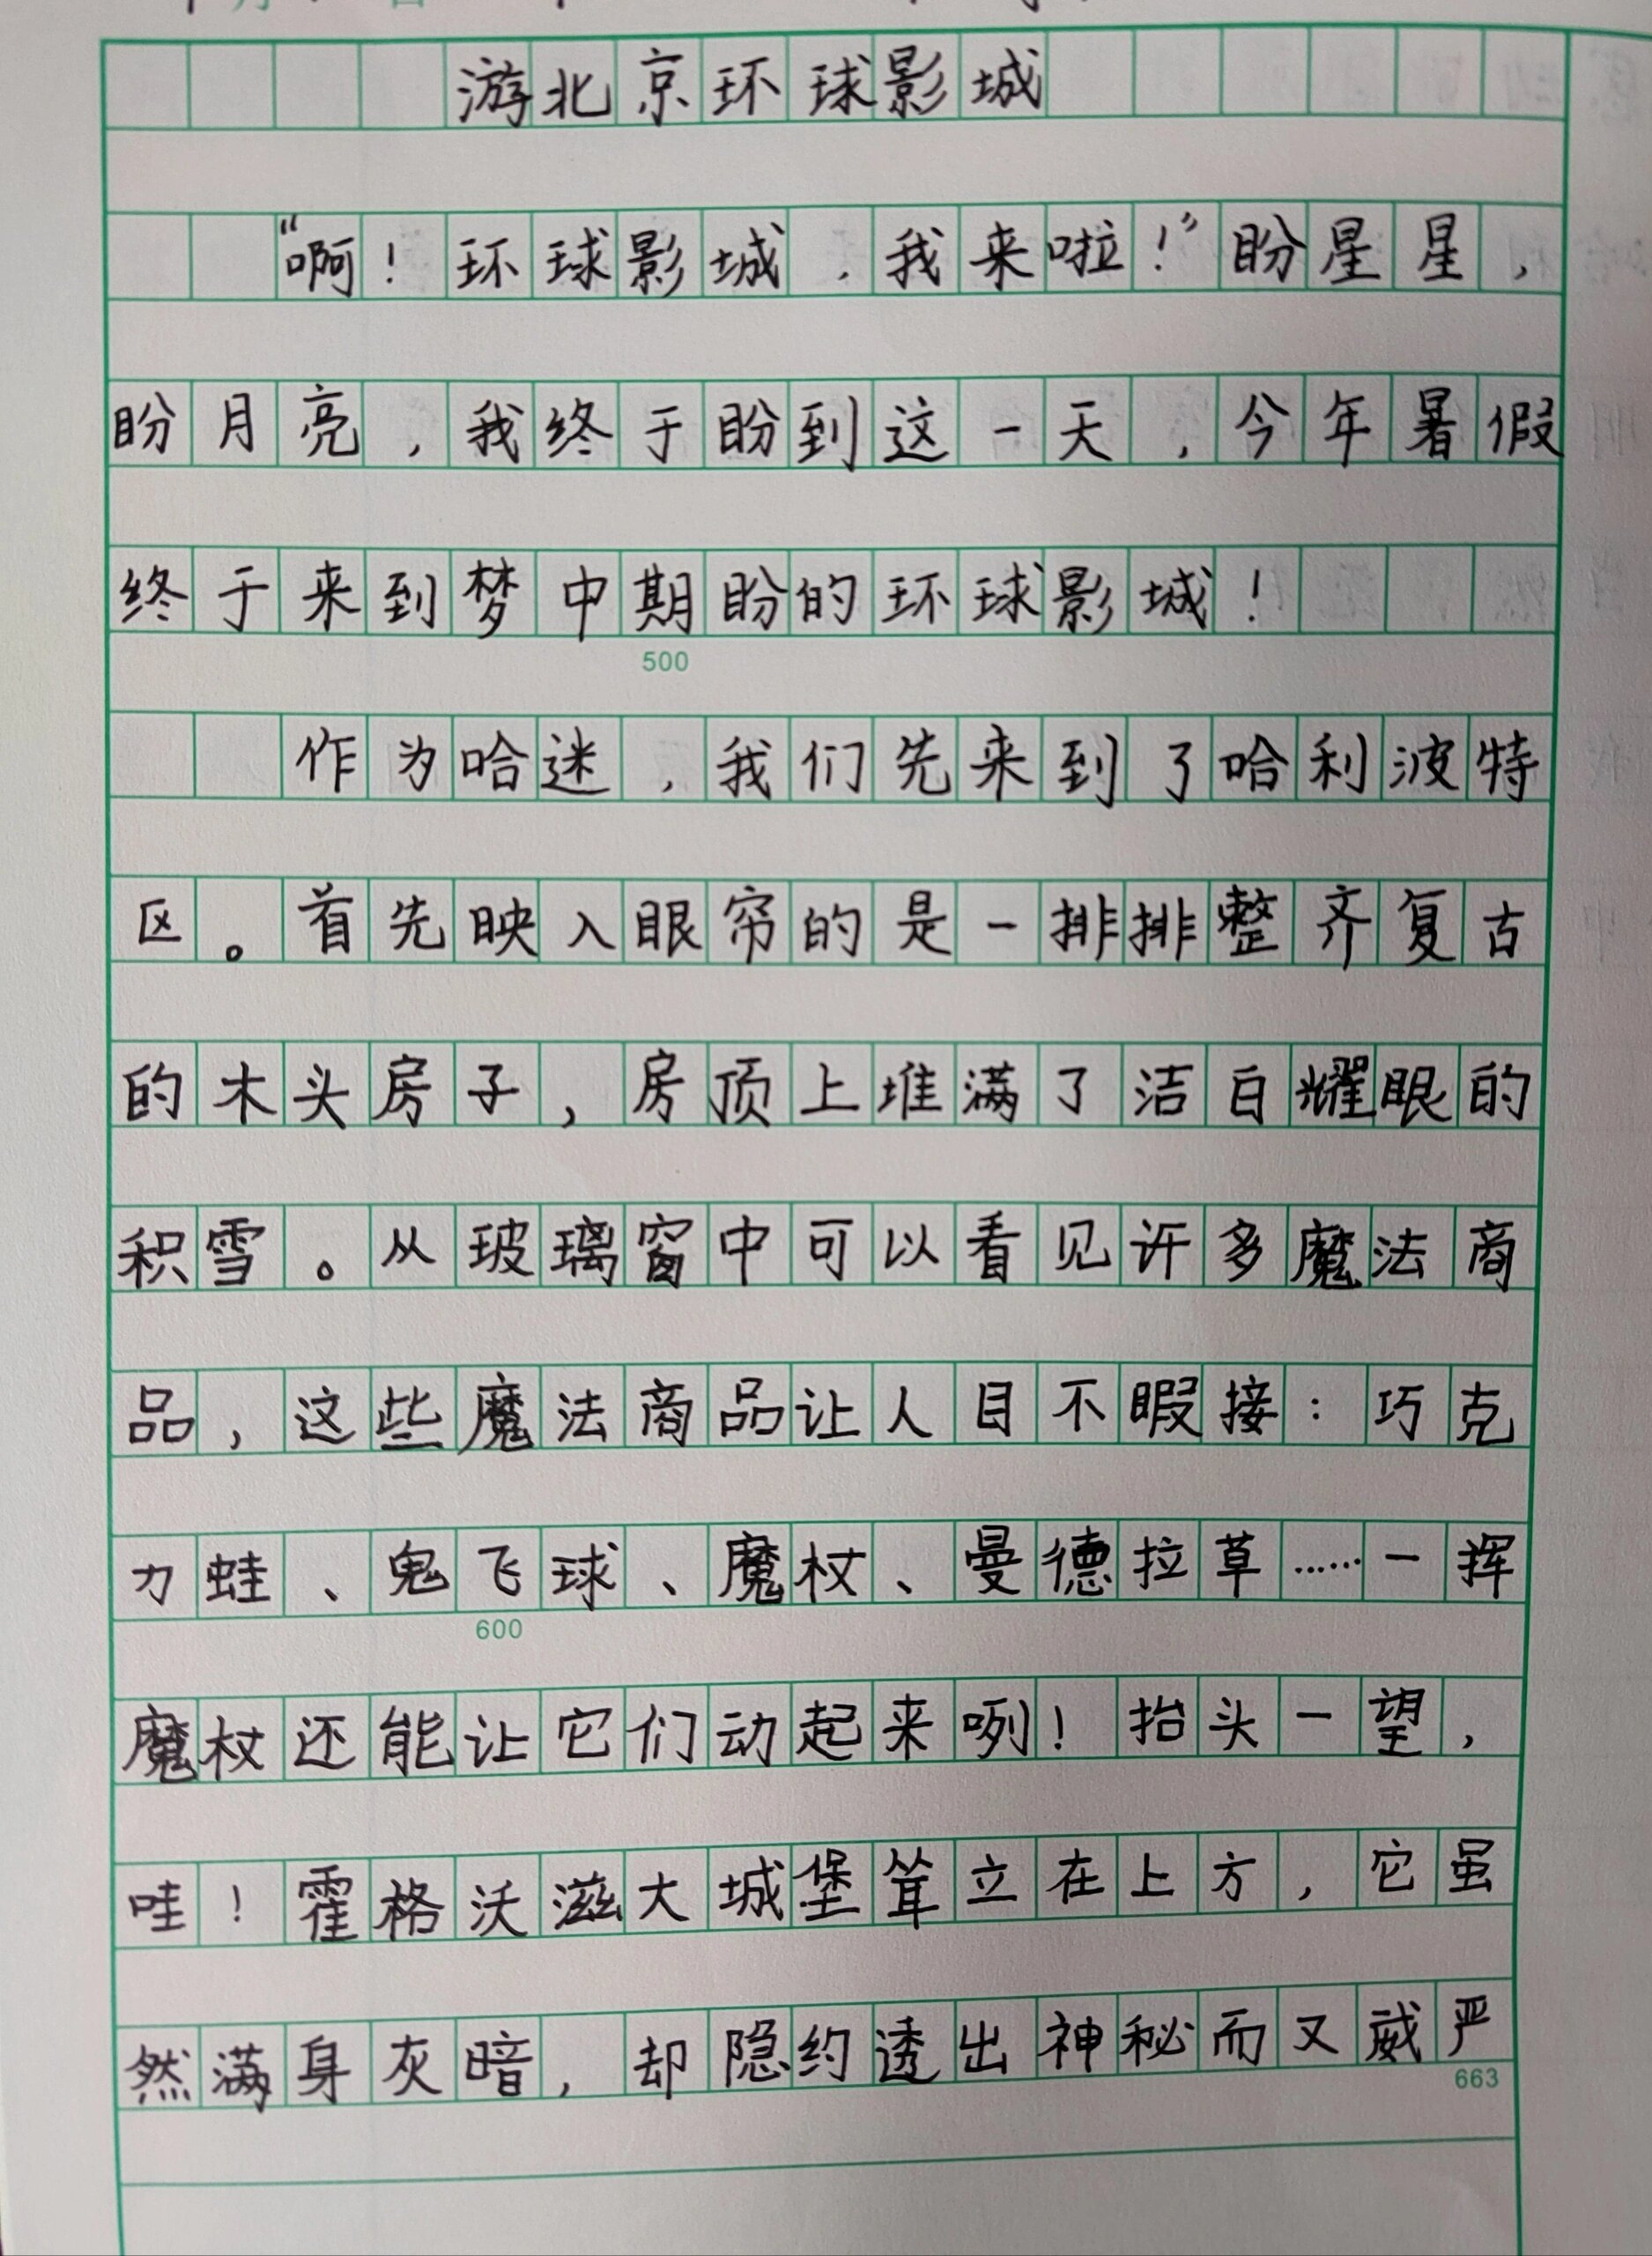 游北京环球影城
“啊！环球影城，我来啦！”盼星星，
盼月亮，我终于盼到这一天，今年暑假
终于来到梦中期盼的环球影城！
500
作为哈迷，我们先来到了哈利波特
区。首先映入眼帘的是一排排整齐复古
的木头房子，房顶上堆满了洁白耀眼的
积雪。从玻璃窗中可以看见许多魔法商
品，这些魔法商品让人目不暇接：巧克
力蛙、鬼飞球、魔杖、曼德拉草……一挥
600
魔杖还能让它们动起来咧！抬头一望，
哇！霍格沃滋大城堡耸立在上方，它虽
然满身灰暗，却隐约透出神秘而又威严
663